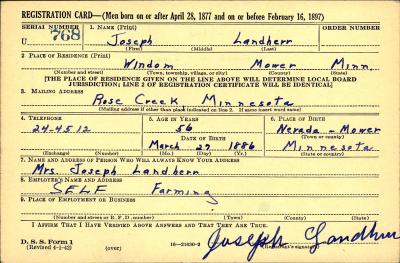 REGISTRATION CARD—(Men born on or after April 28, 1877 and on or before February 16, 1897)
SERIAL NUMBER 1. NAME (Print) ORDER NUMBER
U 768 Joseph Landherr
(First) (Middle) (Last)
2. PLACE OF RESIDENCE (Print)
Windom Mower Minn.
(Number and street) (Town, township, village, or city) (County) (State)
[THE PLACE OF RESIDENCE GIVEN ON THE LINE ABOVE WILL DETERMINE LOCAL BOARD
JURISDICTION; LINE 2 OF REGISTRATION CERTIFICATE WILL BE IDENTICAL]
3. MAILING ADDRESS
Rose Creek Minnesota
[Mailing address if other than place indicated on line 2. If same insert word same]
4. TELEPHONE 5. AGE IN YEARS 6. PLACE OF BIRTH
24-4512 56 Nevada - Mower
DATE OF BIRTH (Town or county)
March 27 1886 Minnesota
(Exchange) (Number) (Mo.) (Day) (Yr.) (State or country)
7. NAME AND ADDRESS OF PERSON WHO WILL ALWAYS KNOW YOUR ADDRESS
Mrs. Joseph Landherr
8. EMPLOYER'S NAME AND ADDRESS
SELF Farming
9. PLACE OF EMPLOYMENT OR BUSINESS
(Number and street or R. F. D. number) (Town) (County) (State)
I AFFIRM THAT I HAVE VERIFIED ABOVE ANSWERS AND THAT THEY ARE TRUE.
D. S. S. Form 1
(Revised 4-1-42) (over) 16—21630-2 Joseph Landherr
(Registrant's signature)